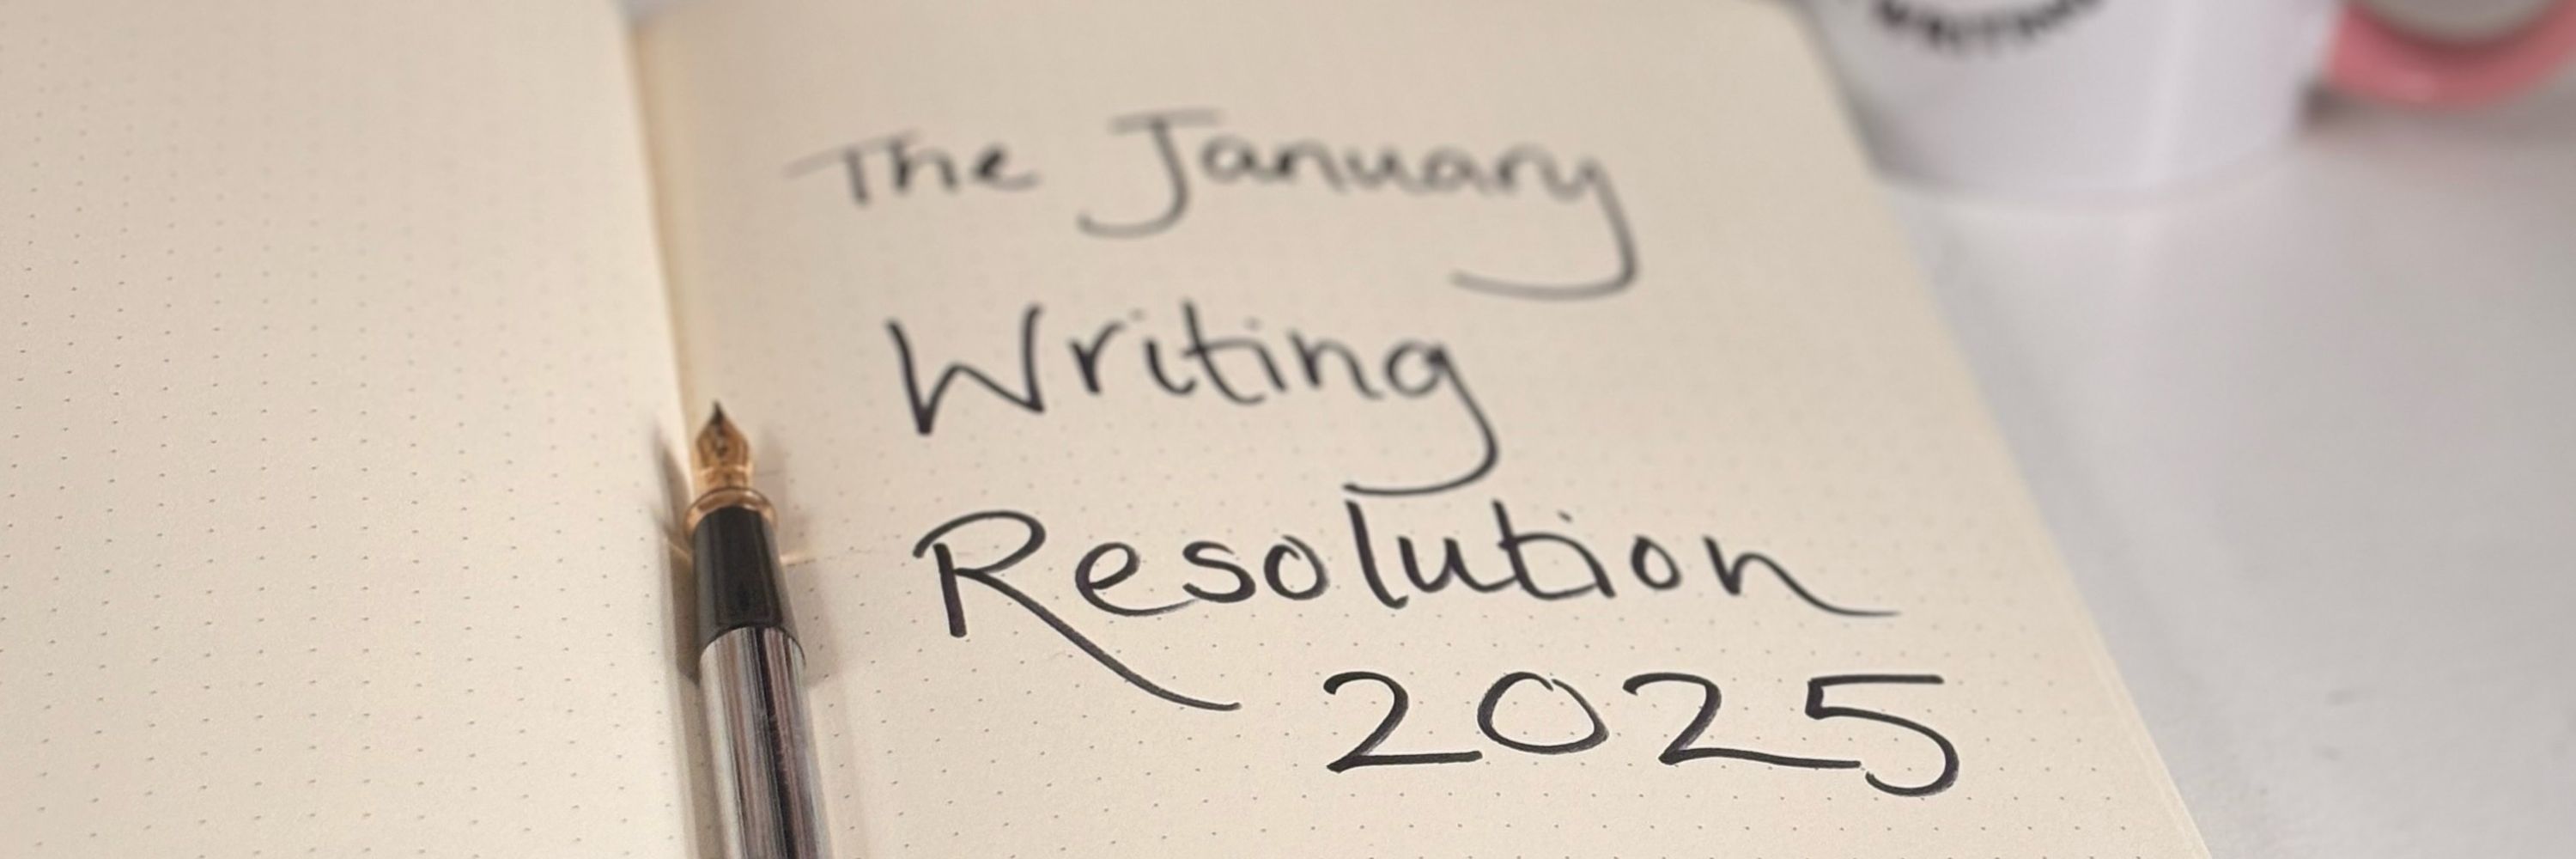 The January
Writing
Resolution
2025